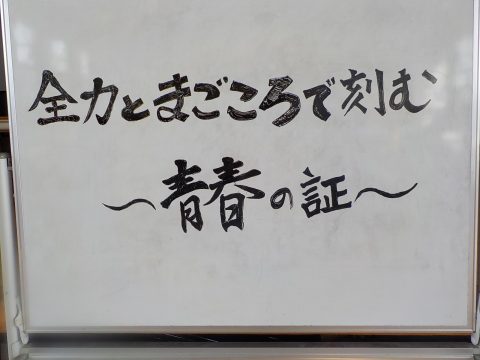 全力とまごころで刻む
～青春の証～